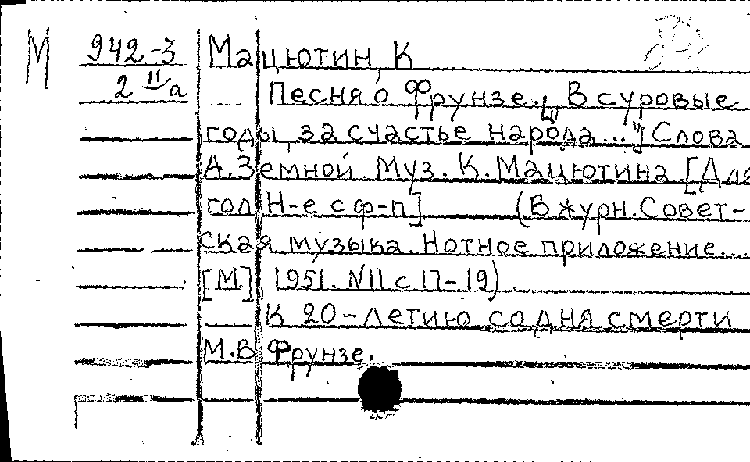 М 942-3 Мацютин, К
2 II/а Песня о Фрунзе. („В суровые
годы, за счастье народа...") Слова
А. Земной. Муз. К. Мацютина [Для
гол. Н-е с ф-п] (В журн. Совет-
ская музыка. Нотное приложение...
[М] 1951. N11 с 17-19)
К 20-летию со дня смерти
М.В. Фрунзе.